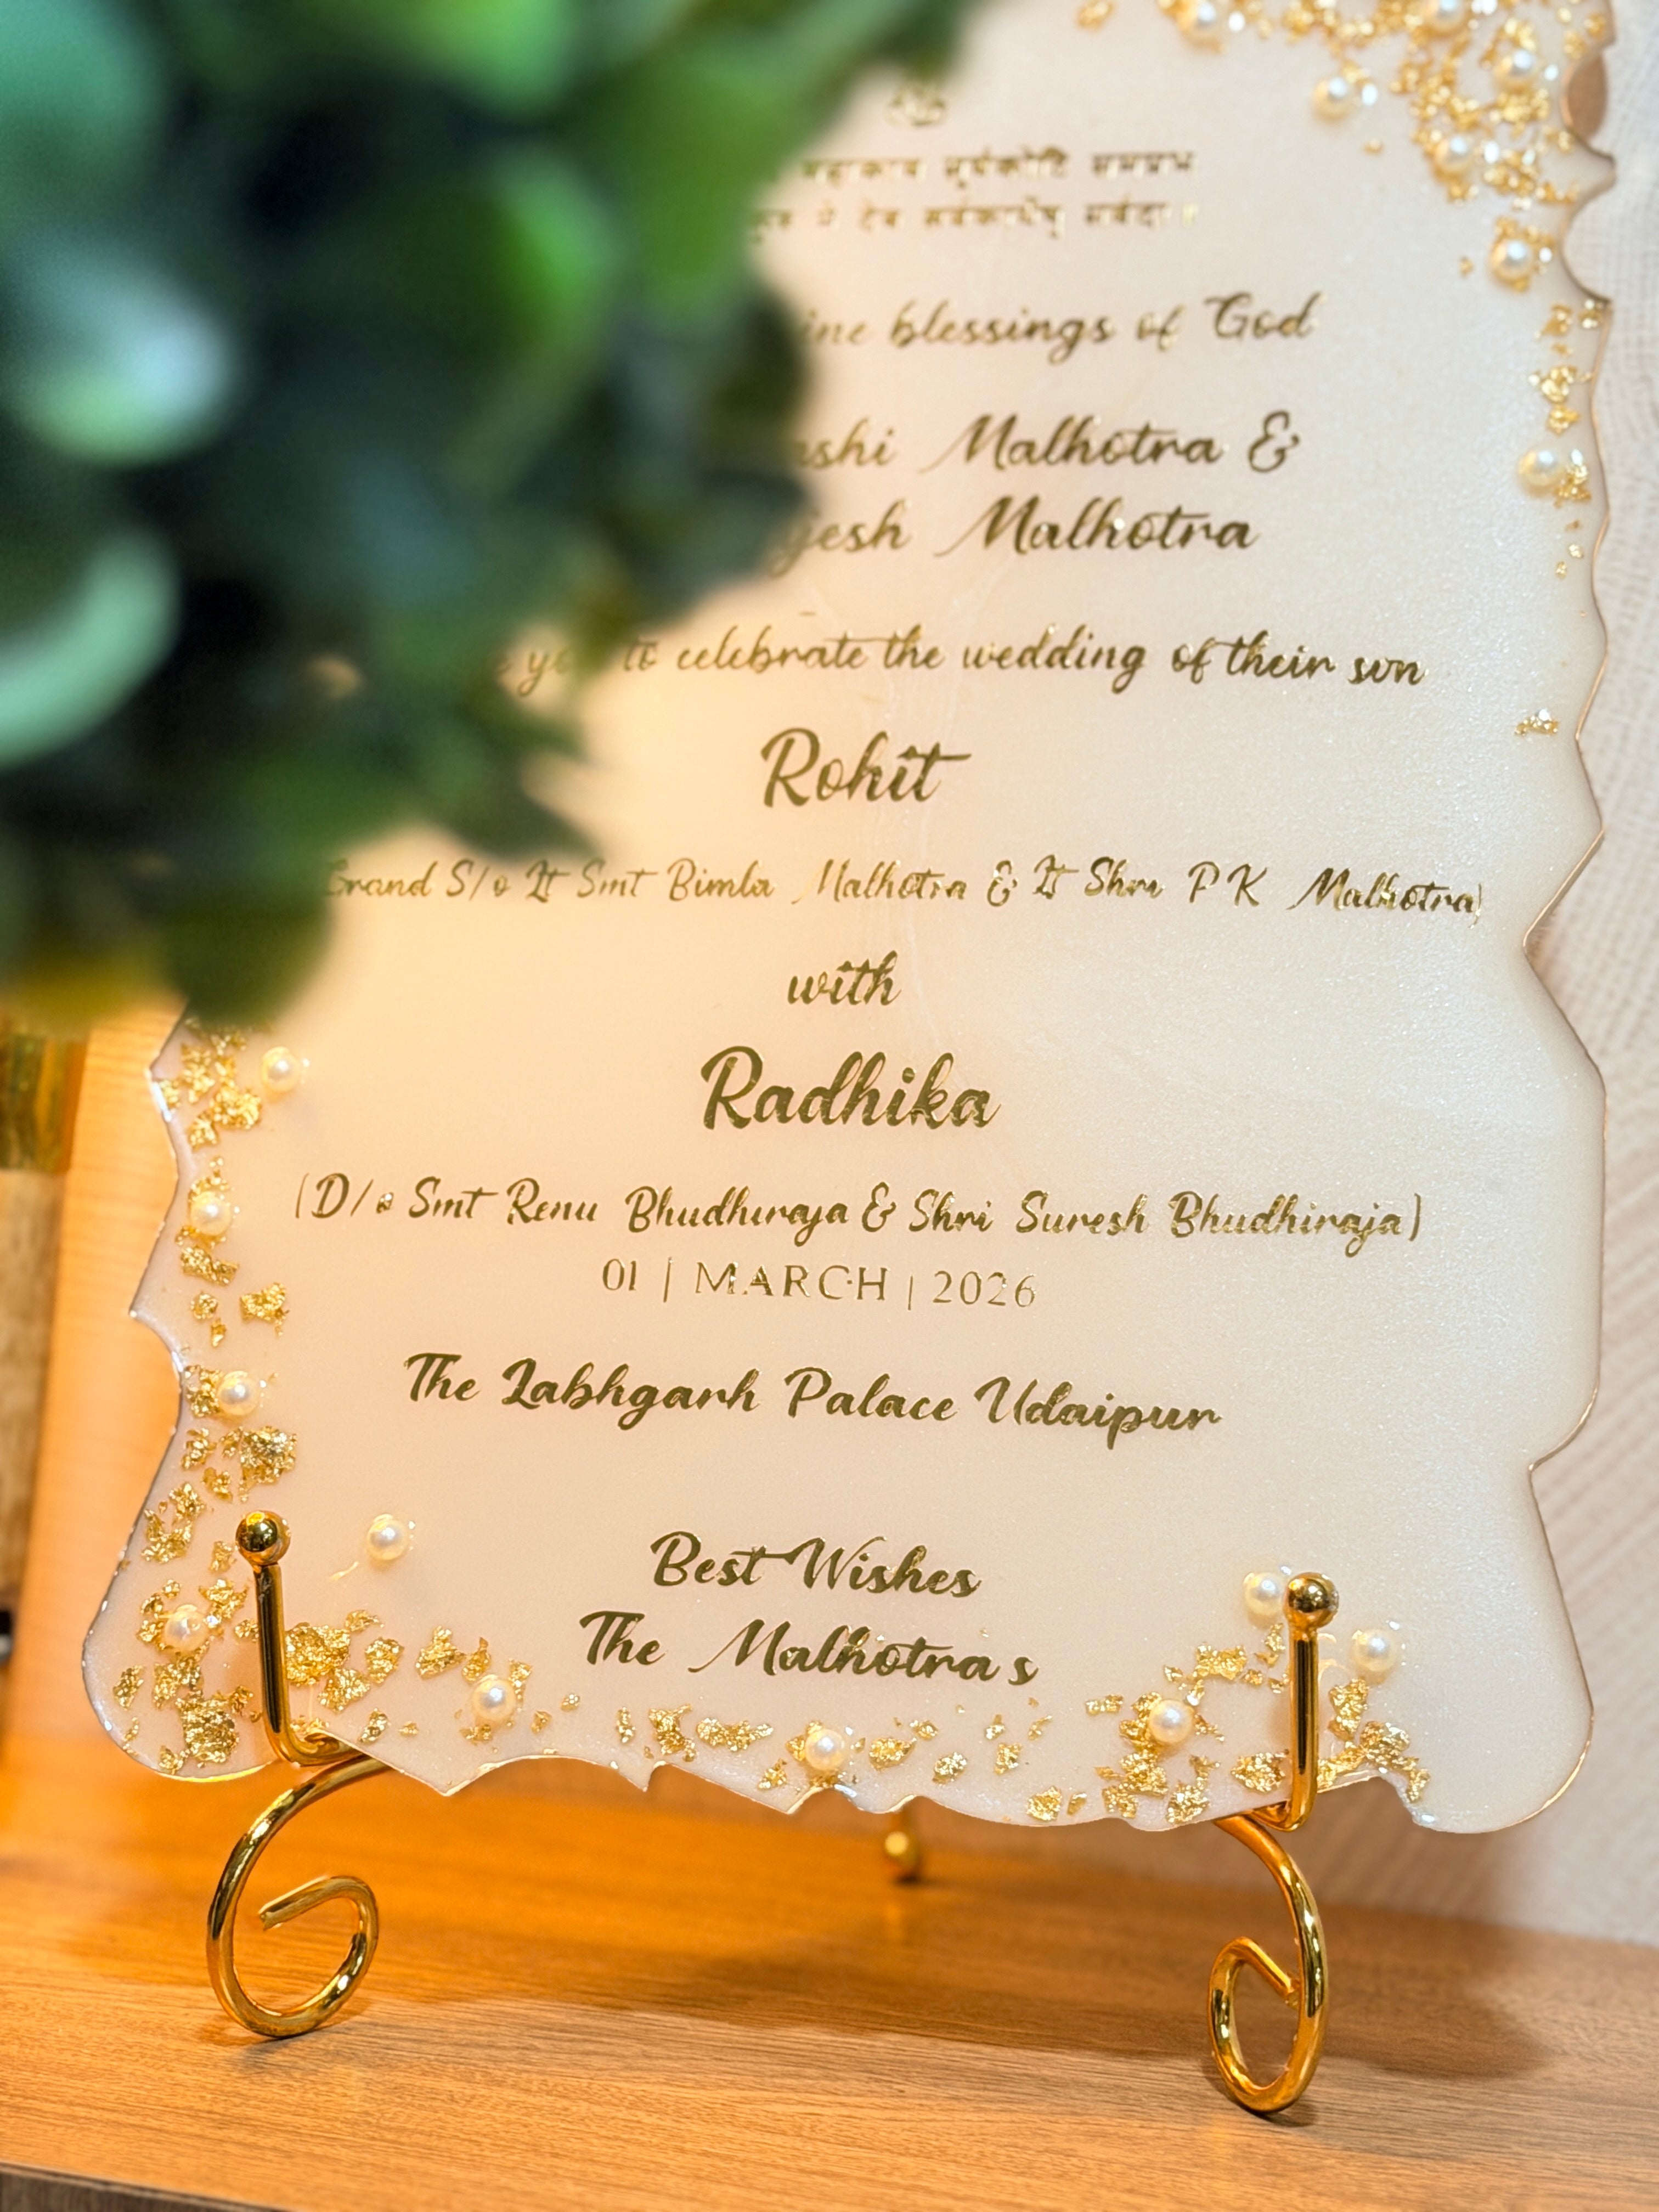 महाकाय सूर्यकोटि समप्रभ
मे देव सर्वकार्येषु सर्वदा॥
blessings of God
Malhotra &
Malhotra
to celebrate the wedding of their son
Rohit
Grand S/o Lt Smt Bimla Malhotra & Lt Shri P K Malhotra)
with
Radhika
(D/o Smt Renu Bhudhiraja & Shri Suresh Bhudhiraja)
01 | MARCH | 2026
The Labhgarh Palace Udaipur
Best Wishes
The Malhotra s